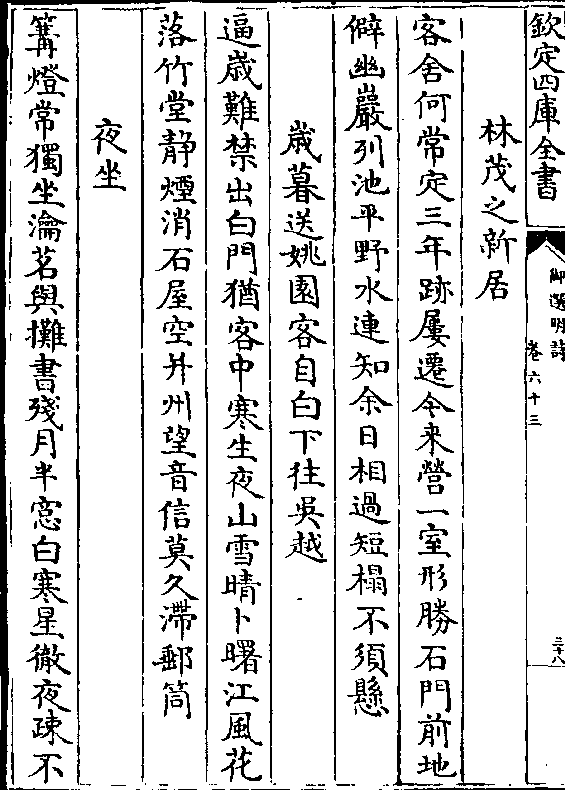 欽定四庫全書
御選明詩
卷六十三
三十八
林茂之新居
客舍何常定三年跡屢遷今来營一室形勝石門前地
僻幽巖列池平野水連知余日相過短榻不須懸
歳暮送姚園客自白下往吳越
逼歳難禁出白門猶客中寒生夜山雪晴卜曙江風花
落竹堂静煙消石屋空并州望音信莫久滯郵筒
夜坐
篝燈常獨坐瀹茗與攤書殘月半窻白寒星徹夜疎不